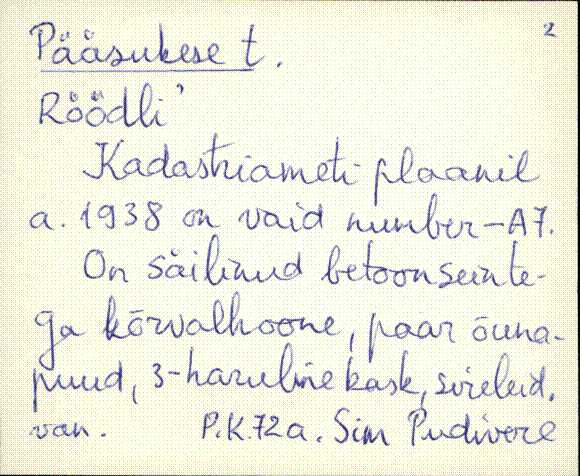 2
Pääsukese t.
Röödli'
Kadastriameti plaanil
a. 1938 on vaid number - A7.
On säilinud betoonseinte-
ga kõrvalhoone, paar õuna-
puud, 3-haruline kask, sireleid.
van. P.K.72a. Sim Pudivere